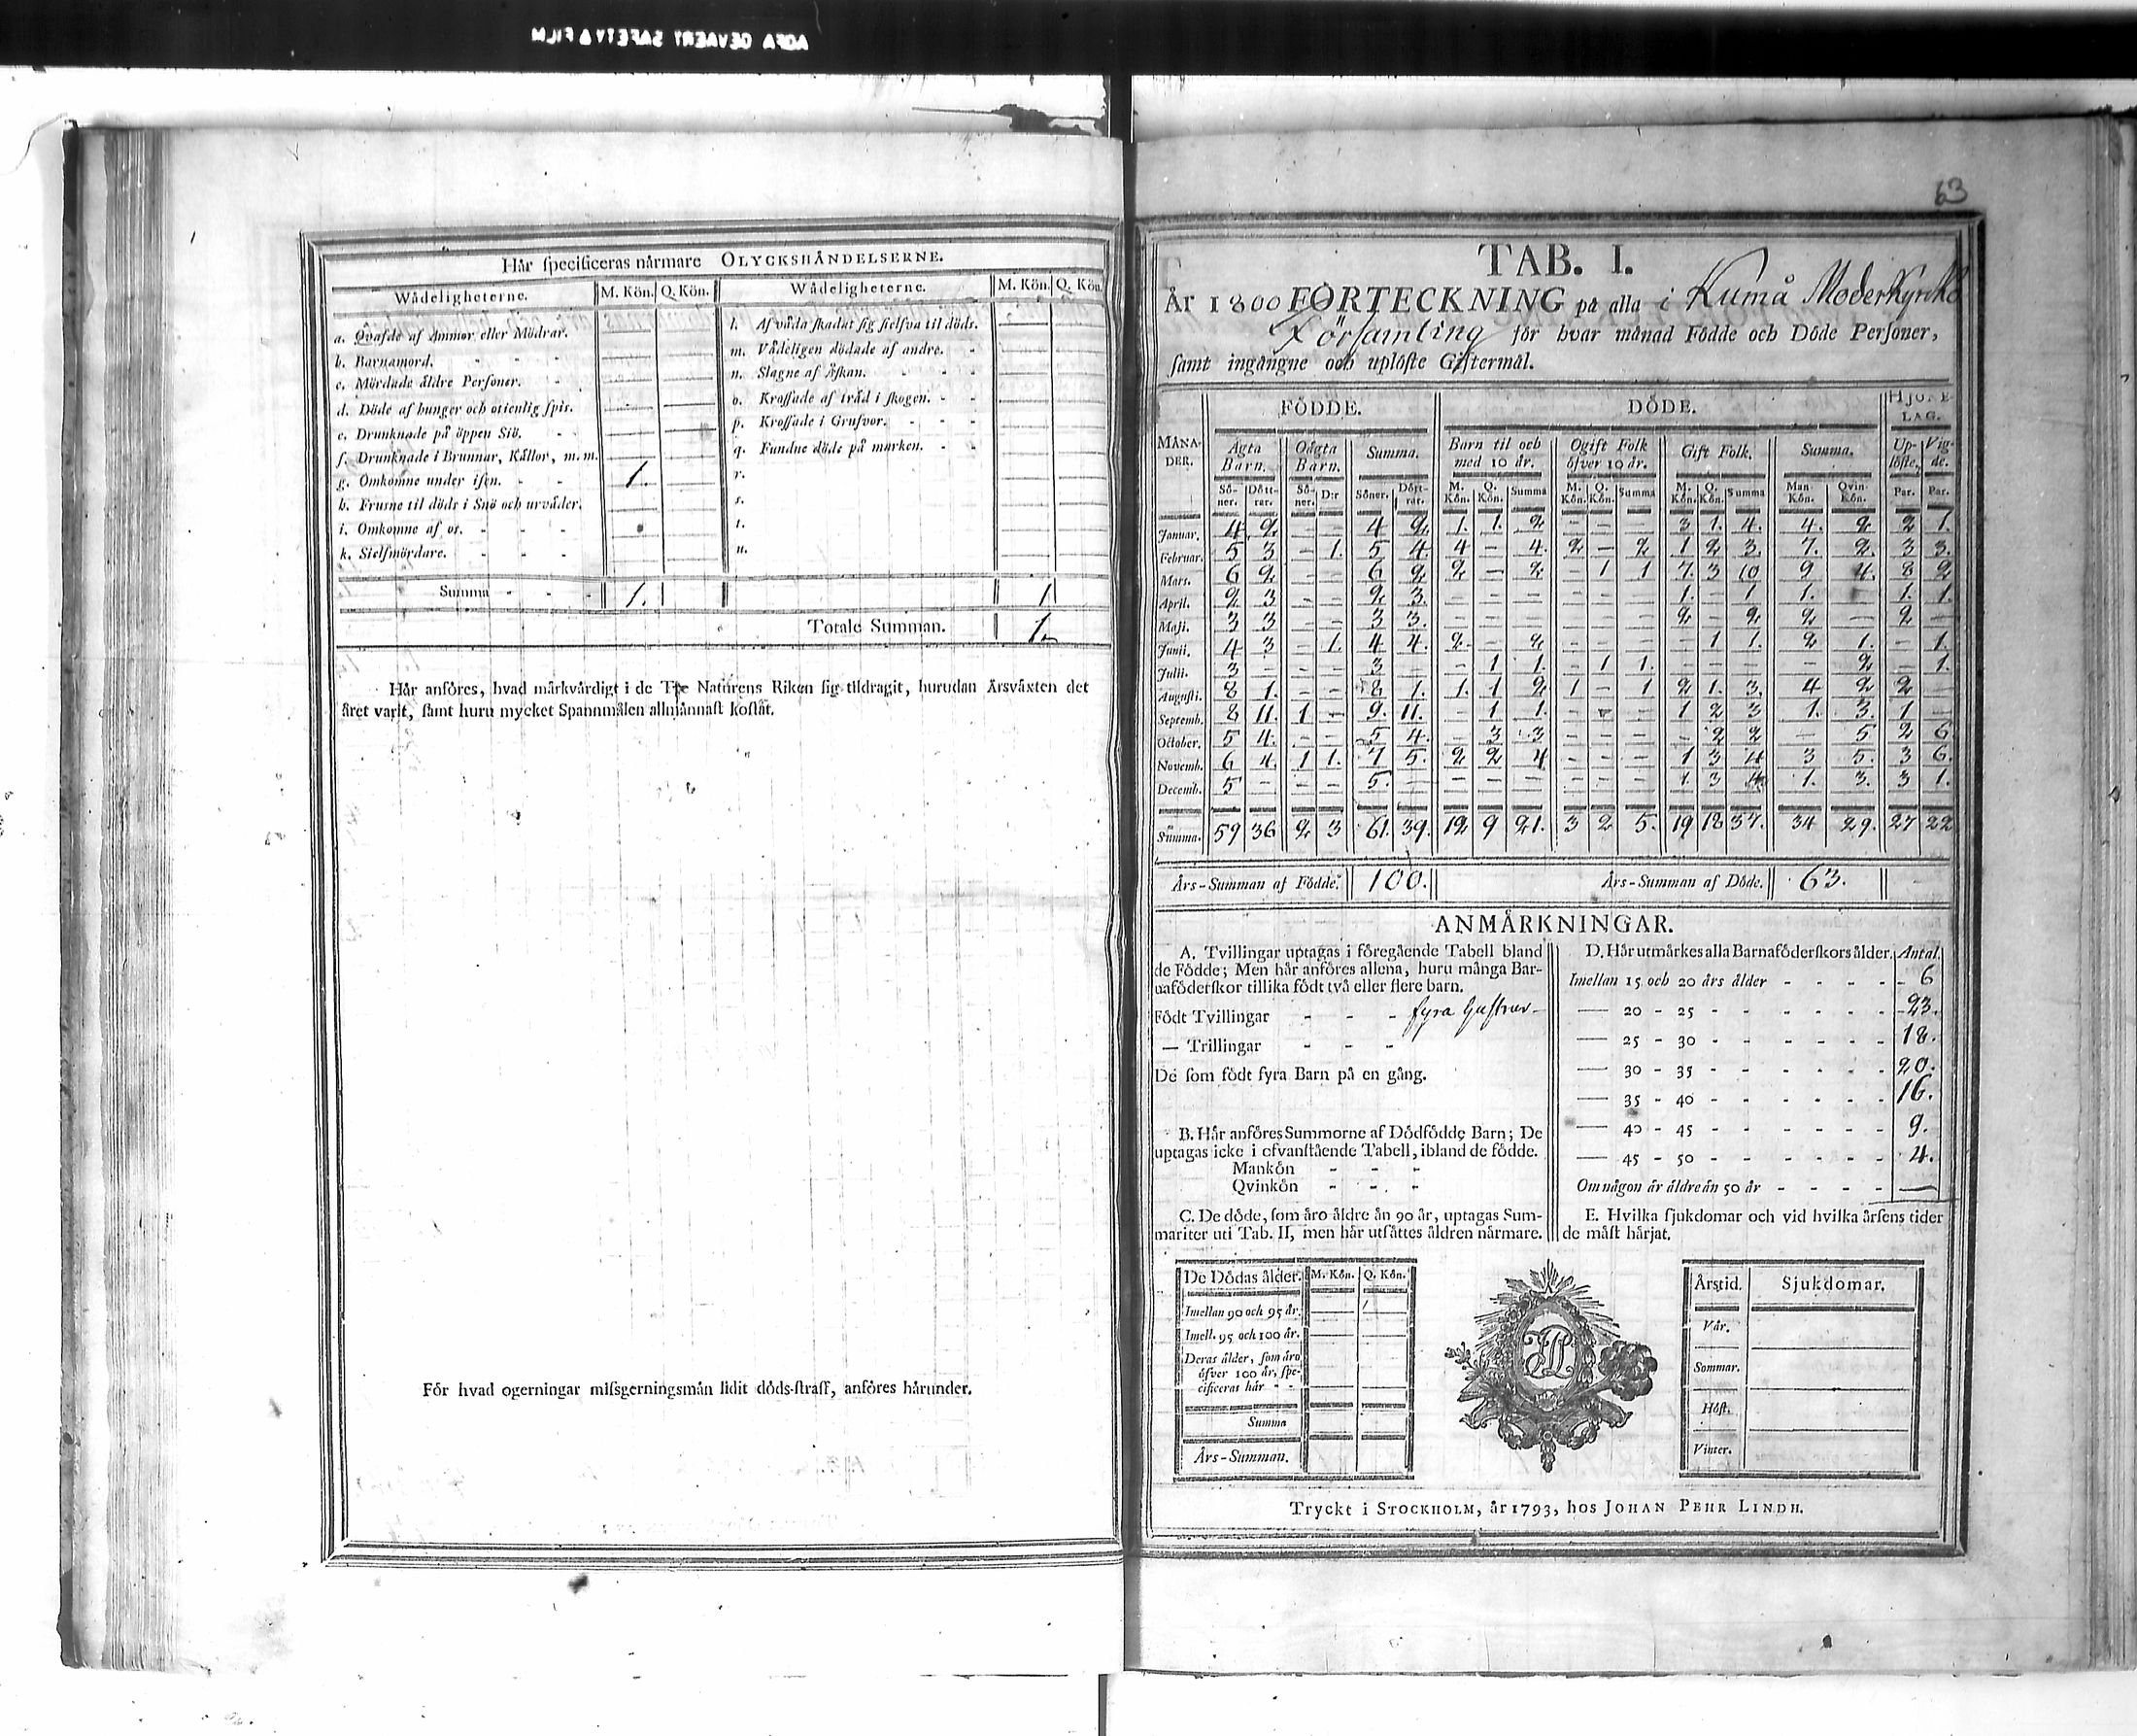 AGFA GEVAERT SAFETY FILM
Hår specificeras nårmare OLYCKSHÅNDELSERNE.
Wådeligheterne. M. Kön. Q. Kön. Wådeligheterne. M. Kön. Q. Kön.
a. Qvafde af Ammor eller Mödrar.
b. Barnamord.
c. Mördade åldre Personer.
d. Döde af hunger och otienlig spis.
e. Drunknade på öppen Siö.
f. Drunknade i Brunnar, Kållor, m. m.
g. Omkomne under isen. 1.
h. Frusne til döds i Snö och urvåder.
i. Omkomne af os.
k. Sielfmördare.
l. Af våda skadat sig sielfva til döds.
m. Vådeligen dödade af andre.
n. Slagne af Åskan.
o. Krossade af tråd i skogen.
p. Krossade i Grufvor.
q. Fundne döde på marken.
r.
s.
t.
u.
Summa 1. 1
Totale Summan. 1
Hår anföres, hvad mårkvårdigt i de Tre Naturens Riken sig tildragit, hurudan Årsvåxten det
året varit, samt huru mycket Spannmålen allmånnast kostat.
För hvad ogerningar missgerningsmån lidit döds-straff, anföres hårunder.
63
TAB. I.
År 1800 FÖRTECKNING på alla i Kumå Moderkyrko
Församling för hvar månad Födde och Döde Personer,
samt ingångne och uplöste Giftermål.
FÖDDE. DÖDE. HJONELAG.
MÅNADER. Ägta Barn. Oågta Barn. Summa. Barn til och med 10 år. Ogift Folk öfver 10 år. Gift Folk. Summa. Uplöste. Vigde.
Söner. Döttrar. Söner. D:r Söner. Döttrar. M. Kön. Q. Kön. Summa M. Kön. Q. Kön. Summa M. Kön. Q. Kön. Summa Mankön. Qvinkön. Par. Par.
Januar. 4 2 - - 4 2 1. 1. 2 - - - 3 1. 4. 4. 2 2 1.
Februar. 5 3 - 1. 5 4 4 - 4. 2 - 2 1 2 3. 7. 2. 3 3.
Mars. 6 2 - - 6 2 2 - 2 - 1 1 7. 3 10 9 4. 8 2
April. 2 3 - - 2 3. - - - - - - 1. - 1 1. - 1. 1.
Maji. 3 3 - - 3 3. - - - - - - 2 - 2 2 - 2 -
Junii. 4 3 - 1. 4 4. 2 - 2 - - - - 1 1. 2 1. - 1.
Julii. 3 - - - 3 - - 1 1. - 1 1. - - - - 2 - 1.
Augusti. 8 1. - - 8 1. 1. 1 2 1 - 1 2 1. 3. 4 2 2 -
Septemb. 8 11. 1 - 9. 11. - 1 1. - - - 1 2 3 1. 3. 1 -
October. 5 4. - - 5 4. - 3 3 - - - - 2 2 - 5 2 6
Novemb. 6 4. 1 1. 7 5. 2 2 4 - - - 1 3 4 3 5. 3 6.
Decemb. 5 - - - 5. - - - - - - - 1 3 4 1. 3. 3 1.
Summa. 59 36 2 3 61. 39. 12 9 21. 3 2 5. 19 18 37. 34 29. 27 22
Års-Summan af Födde. 100. Års-Summan af Döde. 63.
ANMÅRKNINGAR.
A. Tvillingar uptagas i föregående Tabell bland
de Födde; Men hår anföres allena, huru många Bar-
naföderskor tillika födt två eller flere barn.
Födt Tvillingar fyra Hustrur
— Trillingar
De som födt fyra Barn på en gång.
B. Hår anföres Summorne af Dödfödde Barn; De
uptagas icke i ofvanstående Tabell, ibland de födde.
Mankön
Qvinkön
C. De döde, som åro åldre ån 90 år, uptagas Sum-
mariter uti Tab. II, men hår utsåttes åldren nårmare.
D. Hår utmårkes alla Barnaföderskors ålder. Antal.
Imellan 15 och 20 års ålder 6
— 20 - 25 23.
— 25 - 30 18.
— 30 - 35 20.
— 35 - 40 16.
— 40 - 45 9.
— 45 - 50 4.
Om någon år åldre ån 50 år —
E. Hvilka sjukdomar och vid hvilka årsens tider
de måst hårjat.
De Dödas ålder. M. Kön. Q. Kön.
Imellan 90 och 95 år.
Imell. 95 och 100 år.
Deras ålder, som åro
öfver 100 år, spe-
cificeras hår
Summa
Års-Summan.
Årstid. Sjukdomar.
Vår.
Sommar.
Höst.
Vinter.
Tryckt i STOCKHOLM, år 1793, hos JOHAN PEHR LINDH.